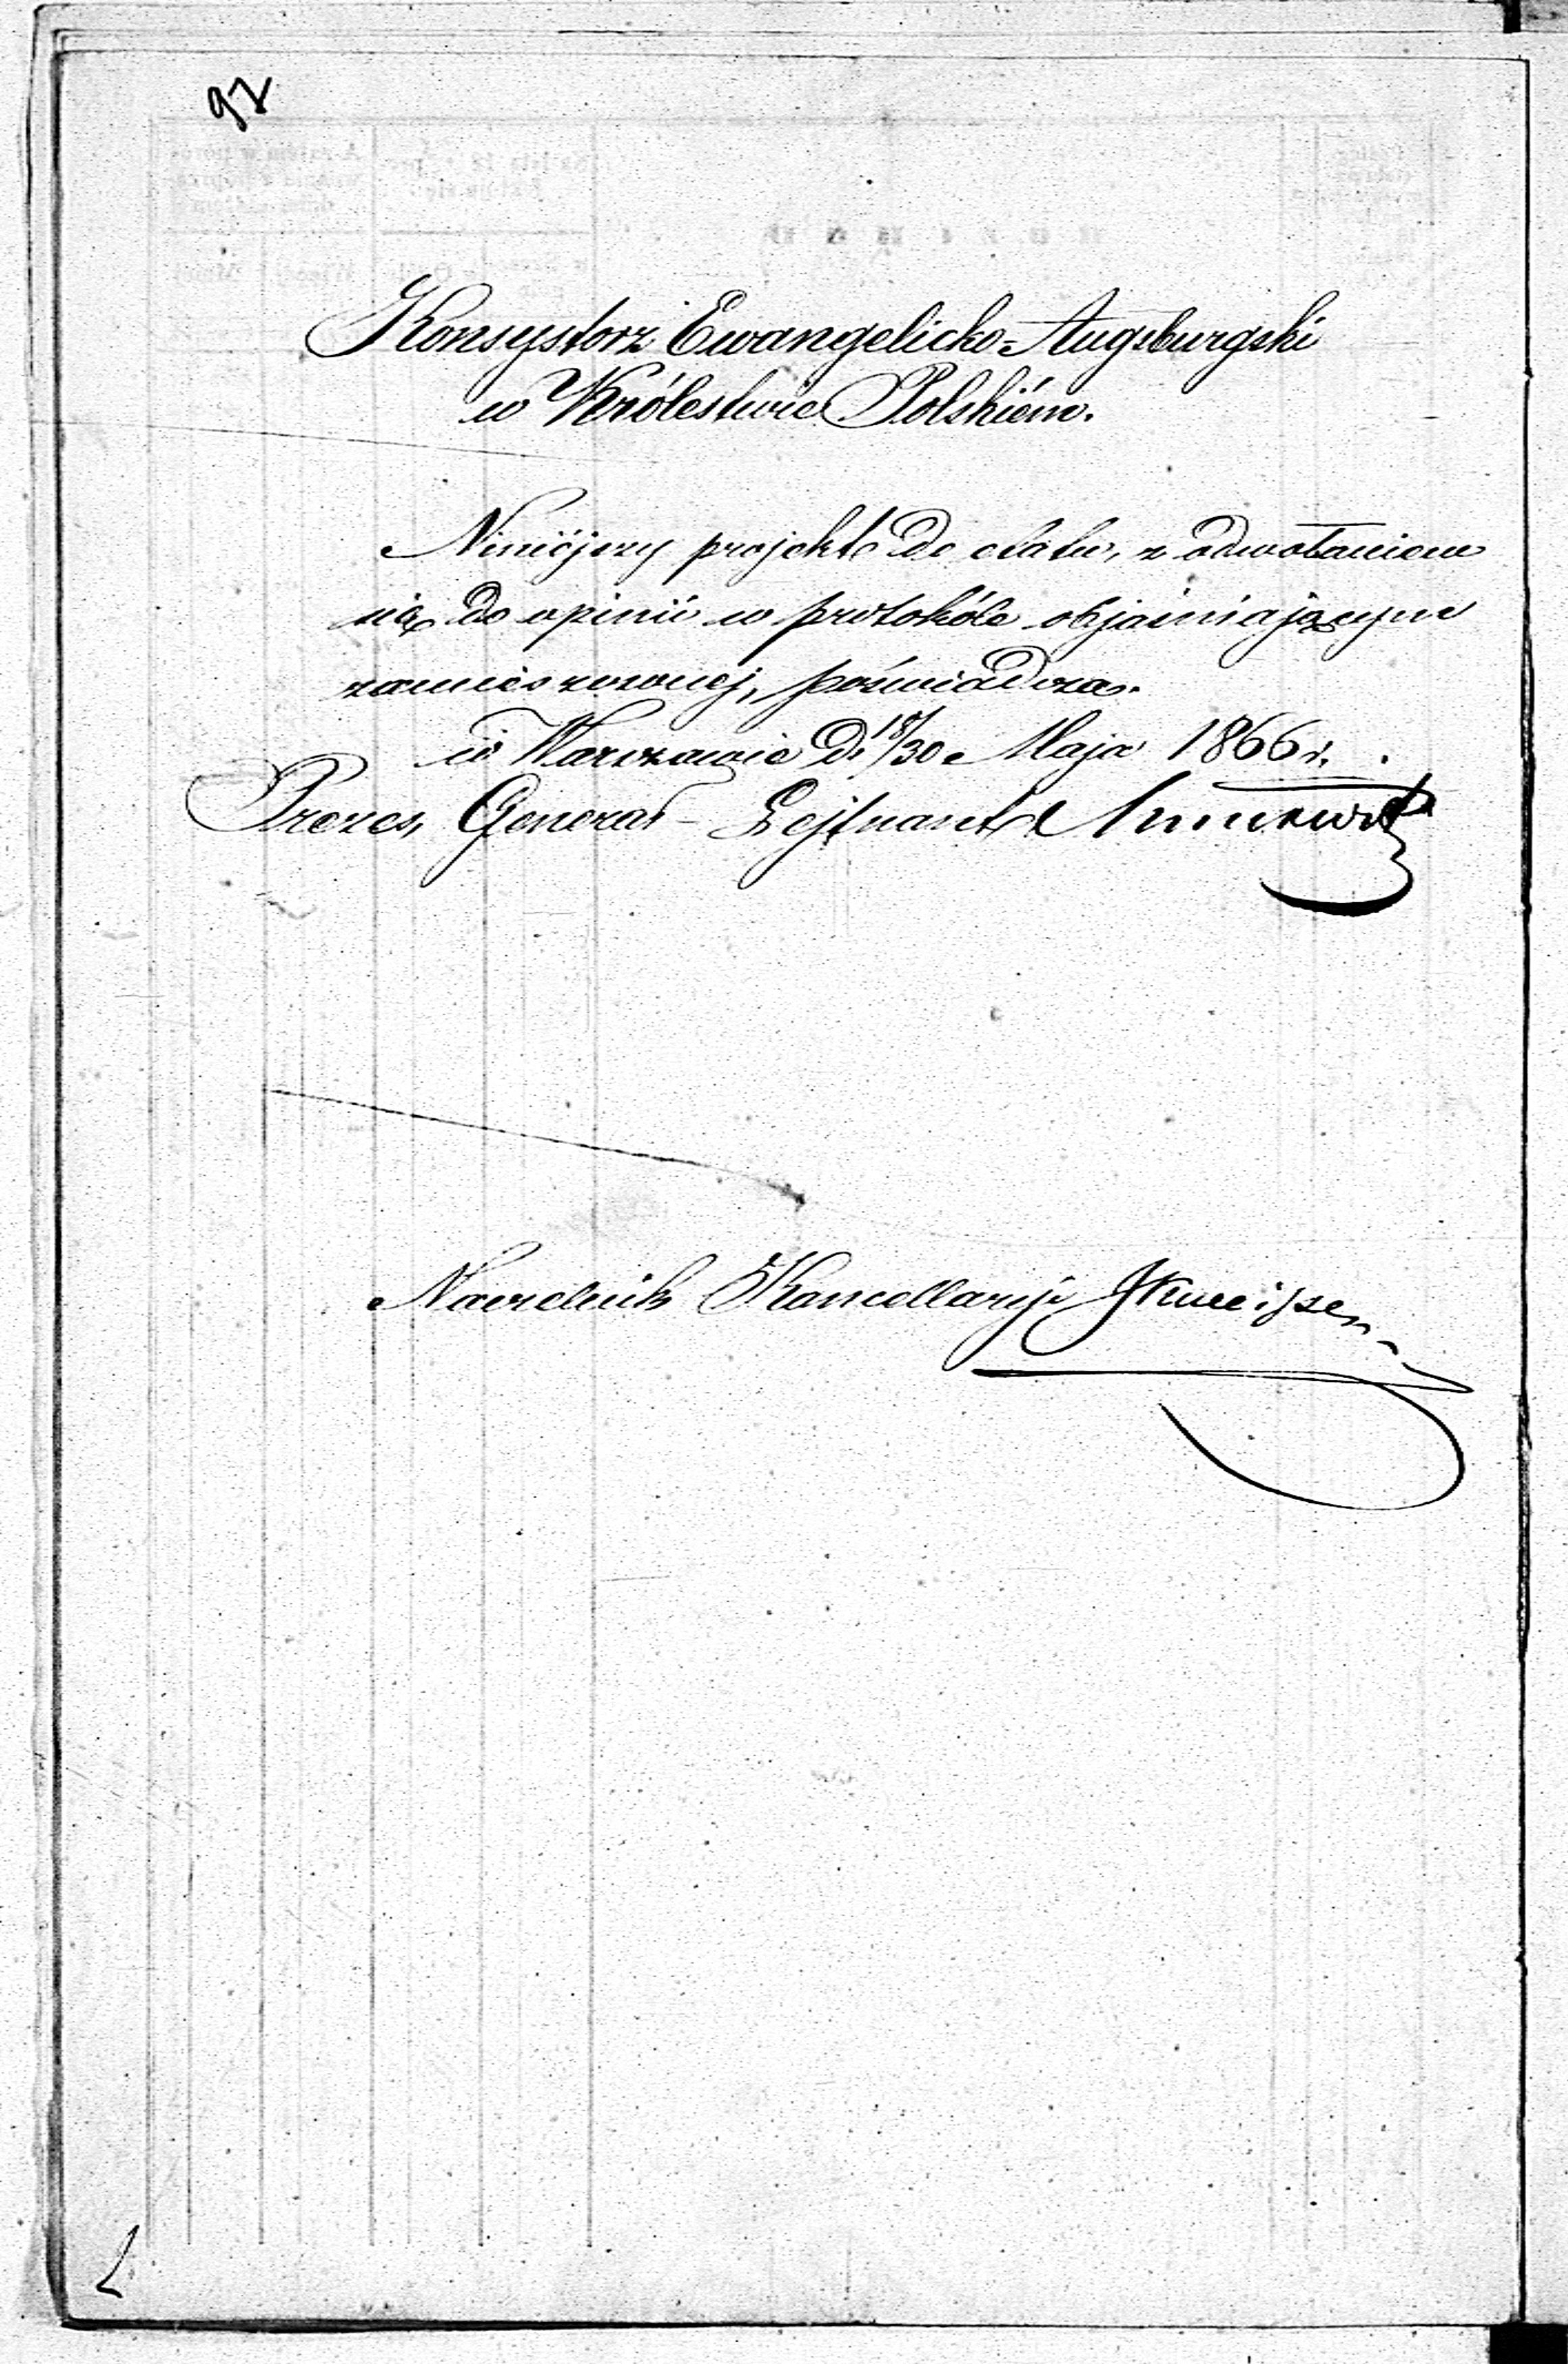 92
Konsystorz Ewangelicko-Augsburgski
w Królestwie Polskiém.
Niniéjszy projekt do etatu, z odwołaniem
się do opinii w protokóle objaśniającym
zamieszczonej, poświadcza.
w Warszawie D. 18/30 Maja 1866 r.
Prezes, Generał-Lejtnant
Naczelnik Kancellaryi